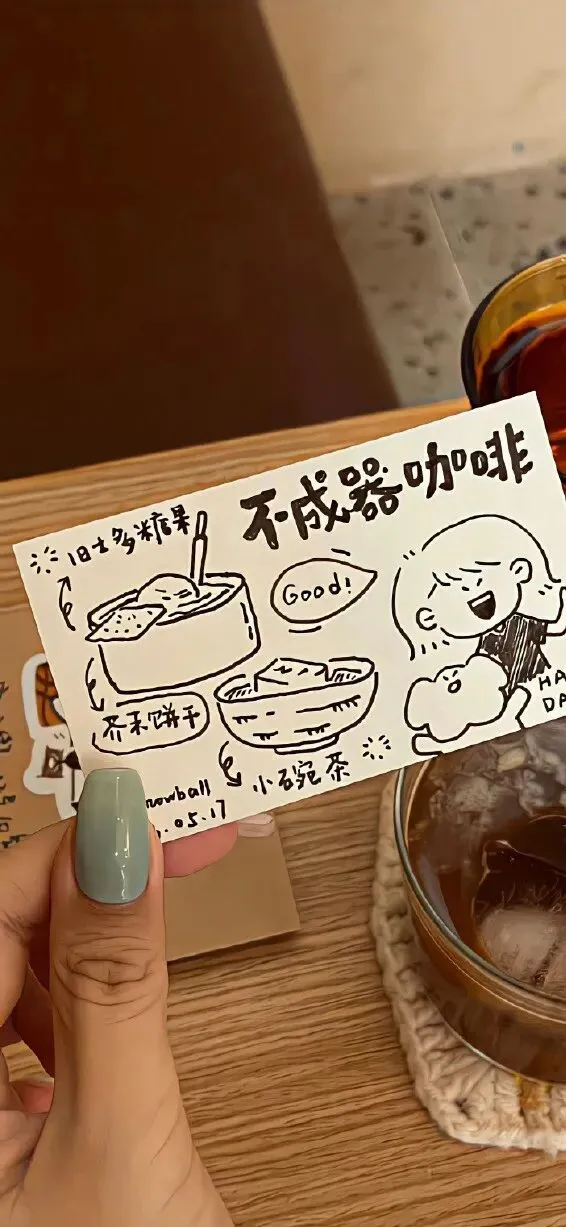 不成器咖啡
旧士多糖果
Good!
芥末饼干
小碗茶
HA
DA
nowball
.05.17